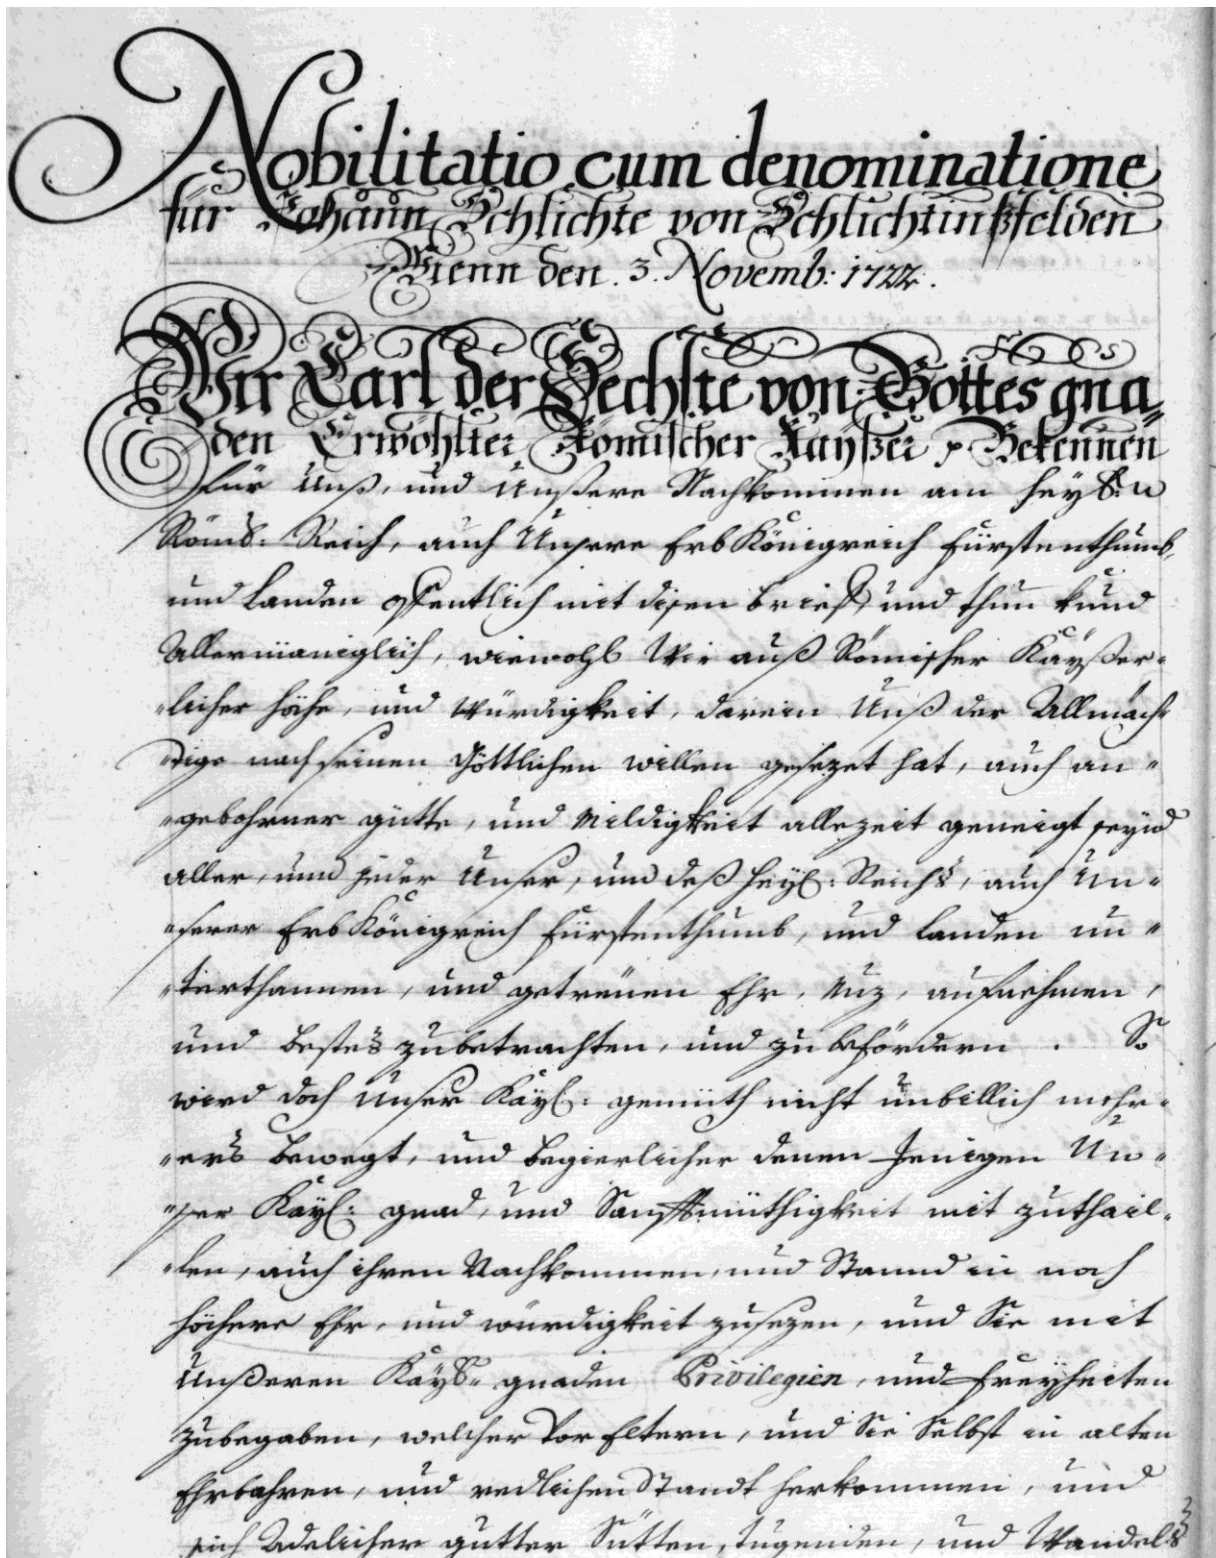 Nobilitatio cum denominatione
für Johann Schlichte von Schlichtinßfelden
Wienn den. 3. Novemb: 1722.
Wir Carl der Sechste von Gottes gna„
den Erwöhlter Römischer Kayßer p. Bekennen
für Unß, und Unßere Nachkommen am heyl:
Röm: Reich, auch Unsere Erb Königreich Fürstenthumb,
und Landen offentlich mit disen brieff, und thun kund
Allermäniglich, wiewohl Wir auß Römischer Kayßer„
„licher höche, und Würdigkeit, darein Unß der Allmäch„
„tige nach seinen Göttlichen willen gesezet hat, auch an„
„gebohrner gütte, und Mildigkeit allezeit geneigt seynd
aller, und jeder Unser, und deß heyl: Reichs, auch Un„
„serer Erb Königreich Fürstenthumb, und Landen un„
„terthannen, und getreüen Ehr, Nuz, aufnehmen,
und bestes zubetrachten, und zu befördern. So
wird doch Unser Kayl: gemüth nicht unbillich mehr„
„ers bewegt, und begierlicher denen Jenigen Un„
„ser Kayl: gnad, und Sanfftmüthigkeit mit zuthail„
„len, auch ihren Nachkommen, und Stannd in noch
höchere Ehr, und würdigkeit zusezen, und Sie mit
Unßeren Kayl: gnaden Privilegien, und Freyheiten
zubegaben, welcher Vor Eltern, und Sie Selbst in alten
Ehrbahren, und redlichen Standt herkommen, und
sich Adelicher gutter Sütten, tugenden, und Wandels